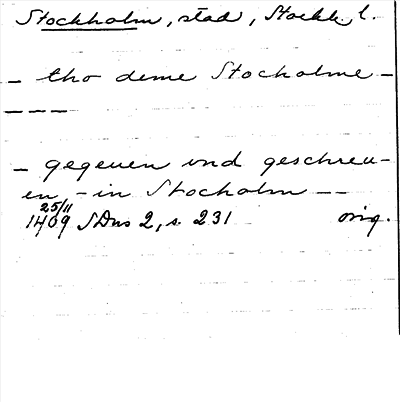 Stockholm, stad, Stockh. l.
– tho deme Stocholme –
– – –
– gegeuen vnd geschreu-
en, – in Stocholm – –
25/11
1409 SDns 2, s. 231 orig.